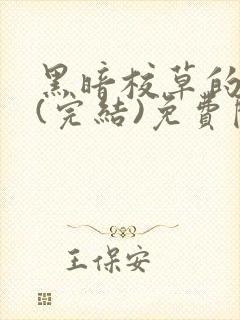 黑暗校草的
(完結)免費
王保安